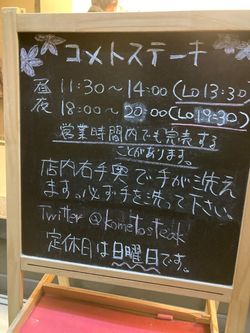 コメトステーキ
昼 11:30〜14:00 (LO 13:30)
夜 18:00〜20:00 (LO 19:30)
営業時間内でも完売する
ことがあります。
店内右手奥で手が洗え
ます。必ず手を洗って下さい。
Twitter @kometosteak
定休日は日曜日です。